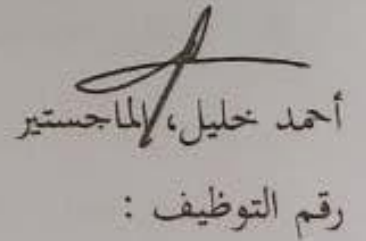 أحمد خليل، الماجستير
رقم التوظيف :